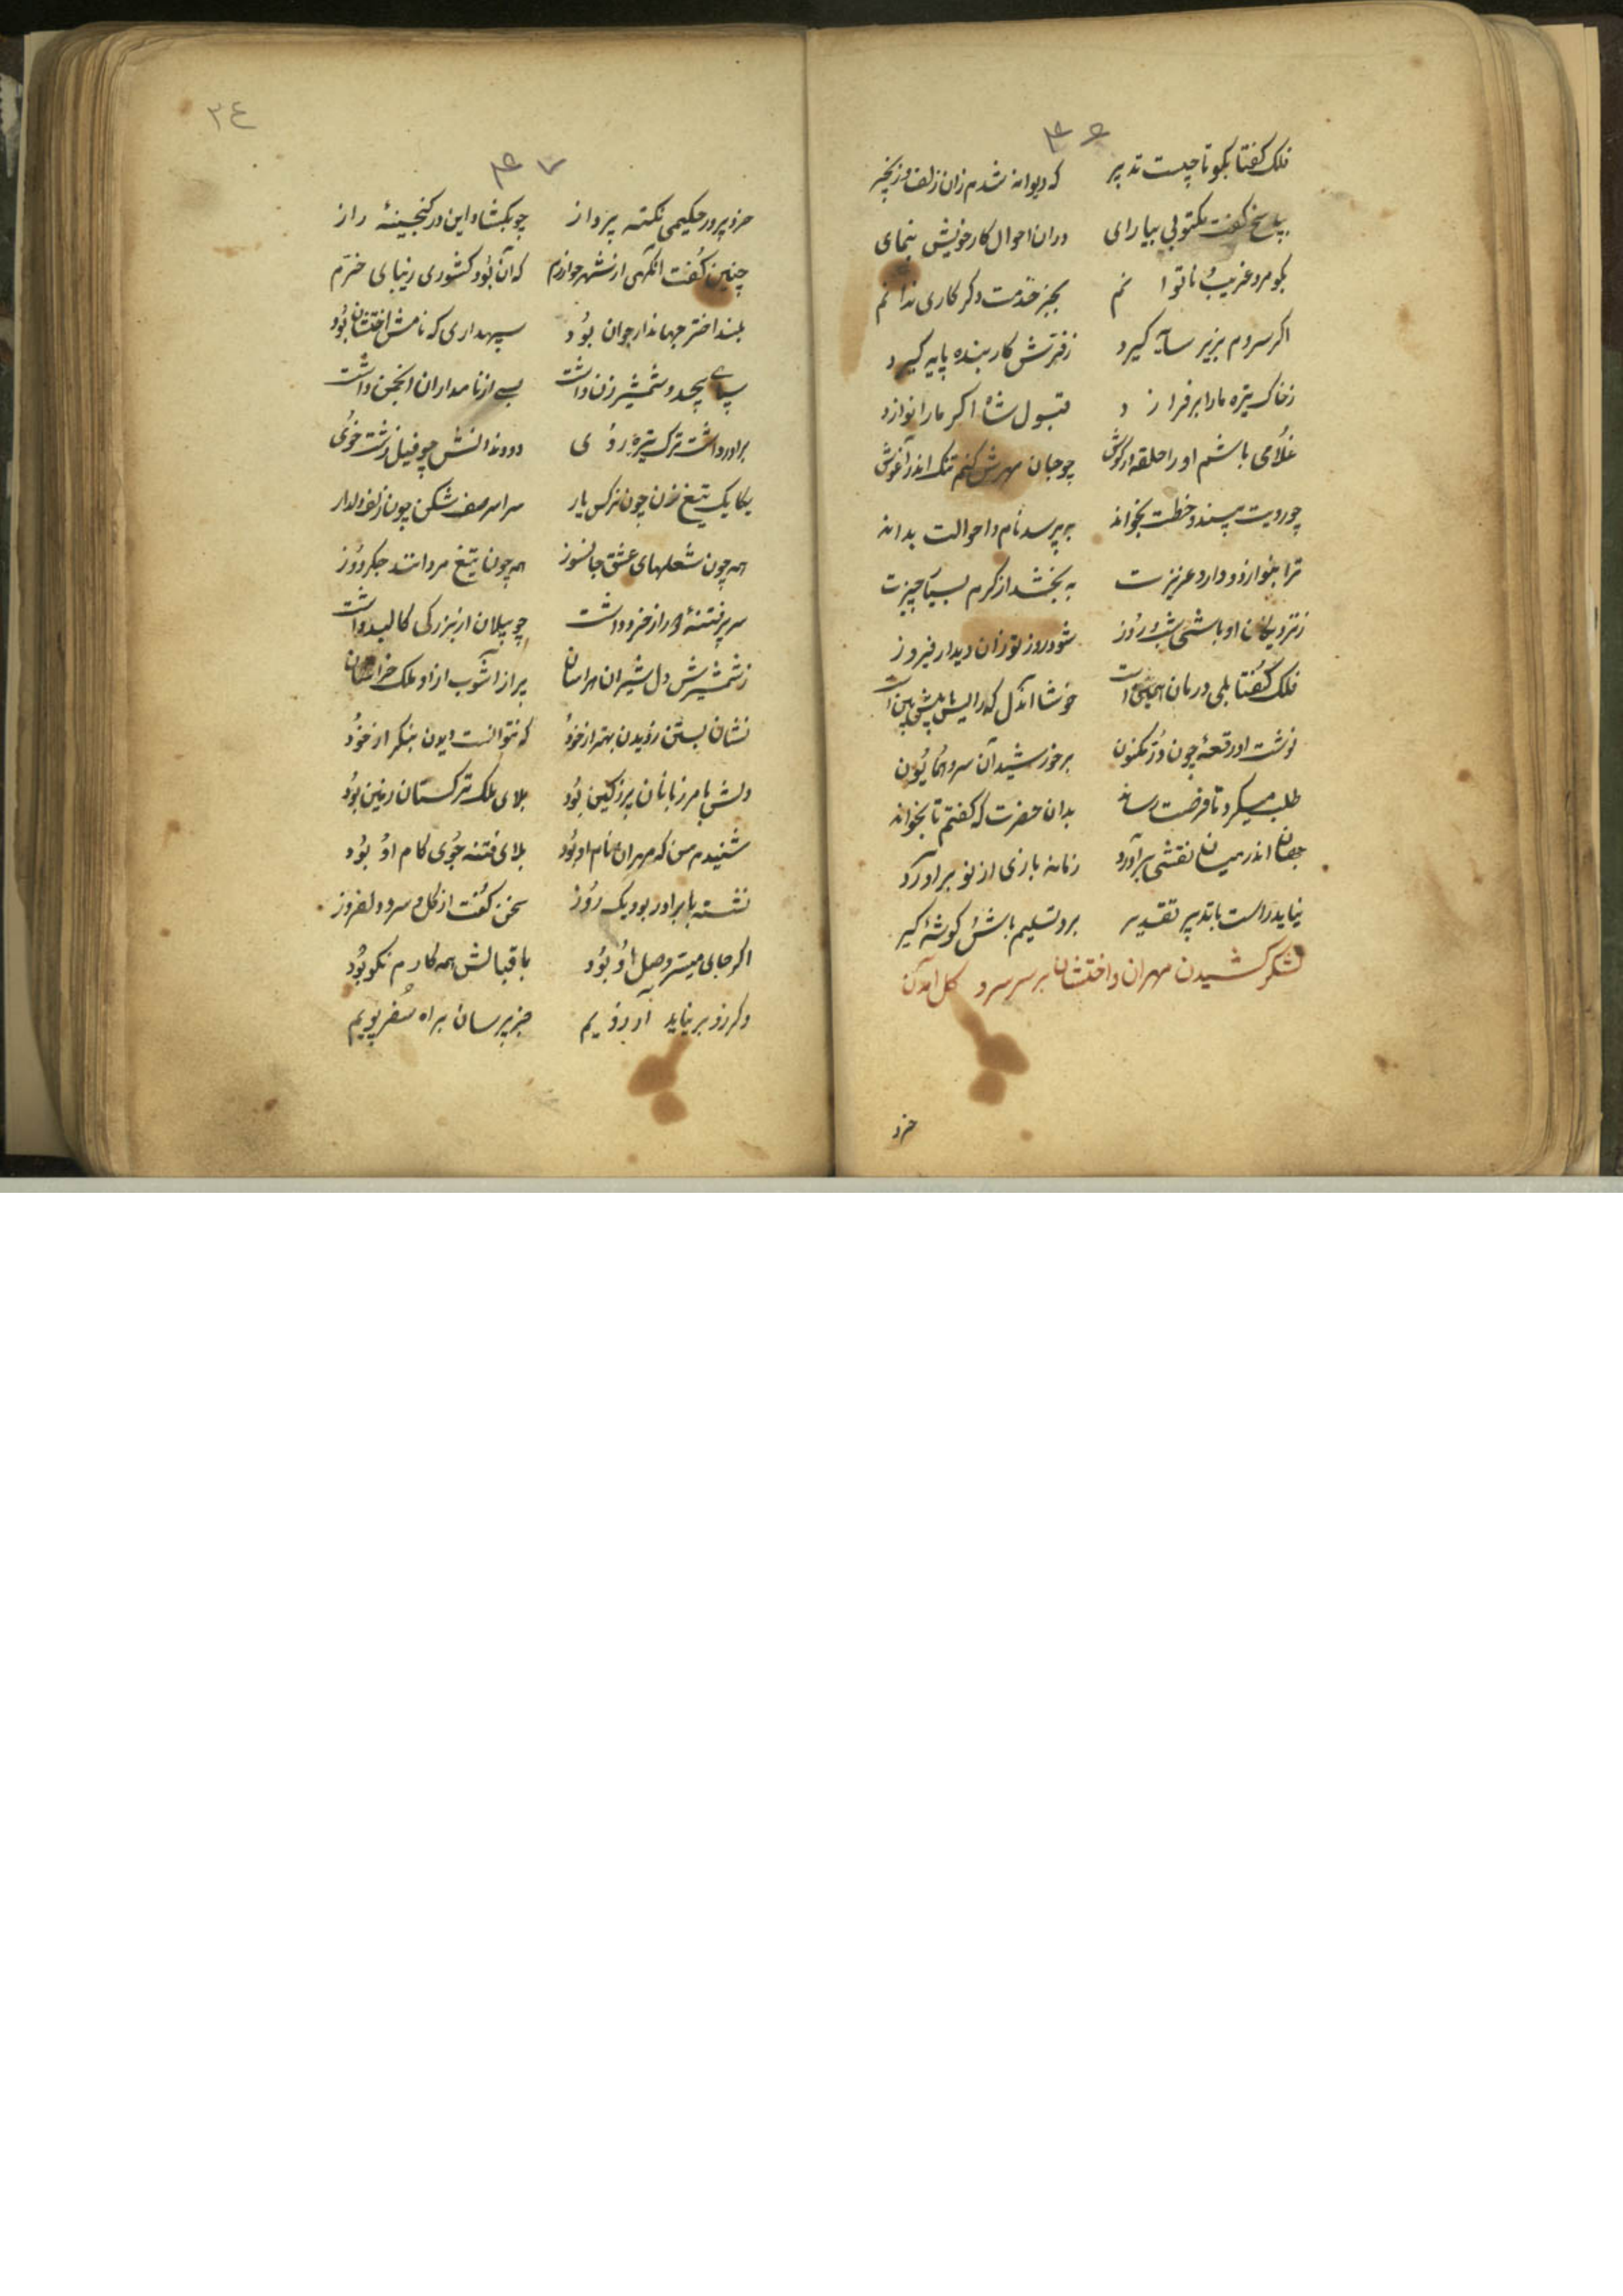 ۴۶
فلک گفتا بگو تا چیست تدبیر که دیوانه شدم زان زلف و زنجیر
بپاسخ گفت مکتوبی بیارای دران احوال کار خویش بنمای
بگو مرد غریب ناتوانم بجز خدمت دگر کاری ندانم
اگر سروم بزیر سایه گیرد ز قربش کار بنده پایه گیرد
ز خاک تیره ما را برفرازد قبول شاه اگر ما را نوازد
غلامی باشم او را حلقه در گوش چو جان مهرش کنم تنگ اندر آغوش
چو رویت بیند و خطت بخواند بپرسد نام و احوالت بداند
ترا بنوازد و دارد عزیزت ببخشد از کرم بسیار چیزت
ز نزدیکان او باشی شب و روز شود روز تو زان دیدار فیروز
فلک گفتا بلی درمان همین است خوشا آندل که رایش پیش بین است
نوشت او رقعهٔ چون در مکنون بر خورشید آن سرو همایون
طلب میکرد تا فرصت رساند بدان حضرت که گفتم تا بخواند
جهان اندر میان نقشی برآورد زمانه بازی از نو برآورد
نیاید راست با تدبیر تقدیر برو تسلیم باش گوشهٔ گیر
لشکر کشیدن مهران و اختشان بر سر سرو گل آمدن
خرد
۳۴
۴۷
خرد پرور حکیمی نکته پرداز چو بکشاد این در گنجینهٔ راز
چنین گفت آنگهی از شهر خوارزم که آن بود کشوری زیبای خرم
بلند اختر جهاندار جوان بود سپهداری که نامش اختشان بود
سپاه بیحد و شمشیر زن داشت بسی از نامداران انجمن داشت
برادر داشت ترک تیره روی دو دندانش چو فیل زشت خوی
یکایک تیغ زن چون نرگس یار سراسر صف شکن چون زلف دلدار
همه چون شعلهای عشق جانسوز همه چون تیغ مردانند جگردوز
سر پر فتنهٔ دور از خرد داشت چو پیلان از بزرگی کالبد داشت
ز شمشیرش دل شیران هراسان پر از آشوب از او ملک خراسان
نشان بستن ندیدن بهتر از خود که نتوانست دیدن بنگر از خود
دلش با مرزبانان پر ز کین بود بلای ملک ترکستان زمین بود
شنیدم من که مهران نام او بود بلای فتنه جوی کام او بود
نشسته با برادر بود یک روز سخن گفت از گل و سرو دلفروز
اگر جای میسر وصل او بود باقبالش همه کارم نکو بود
وگر زو بر نیاید آرزویم خبر پرسان براه سفر پویم